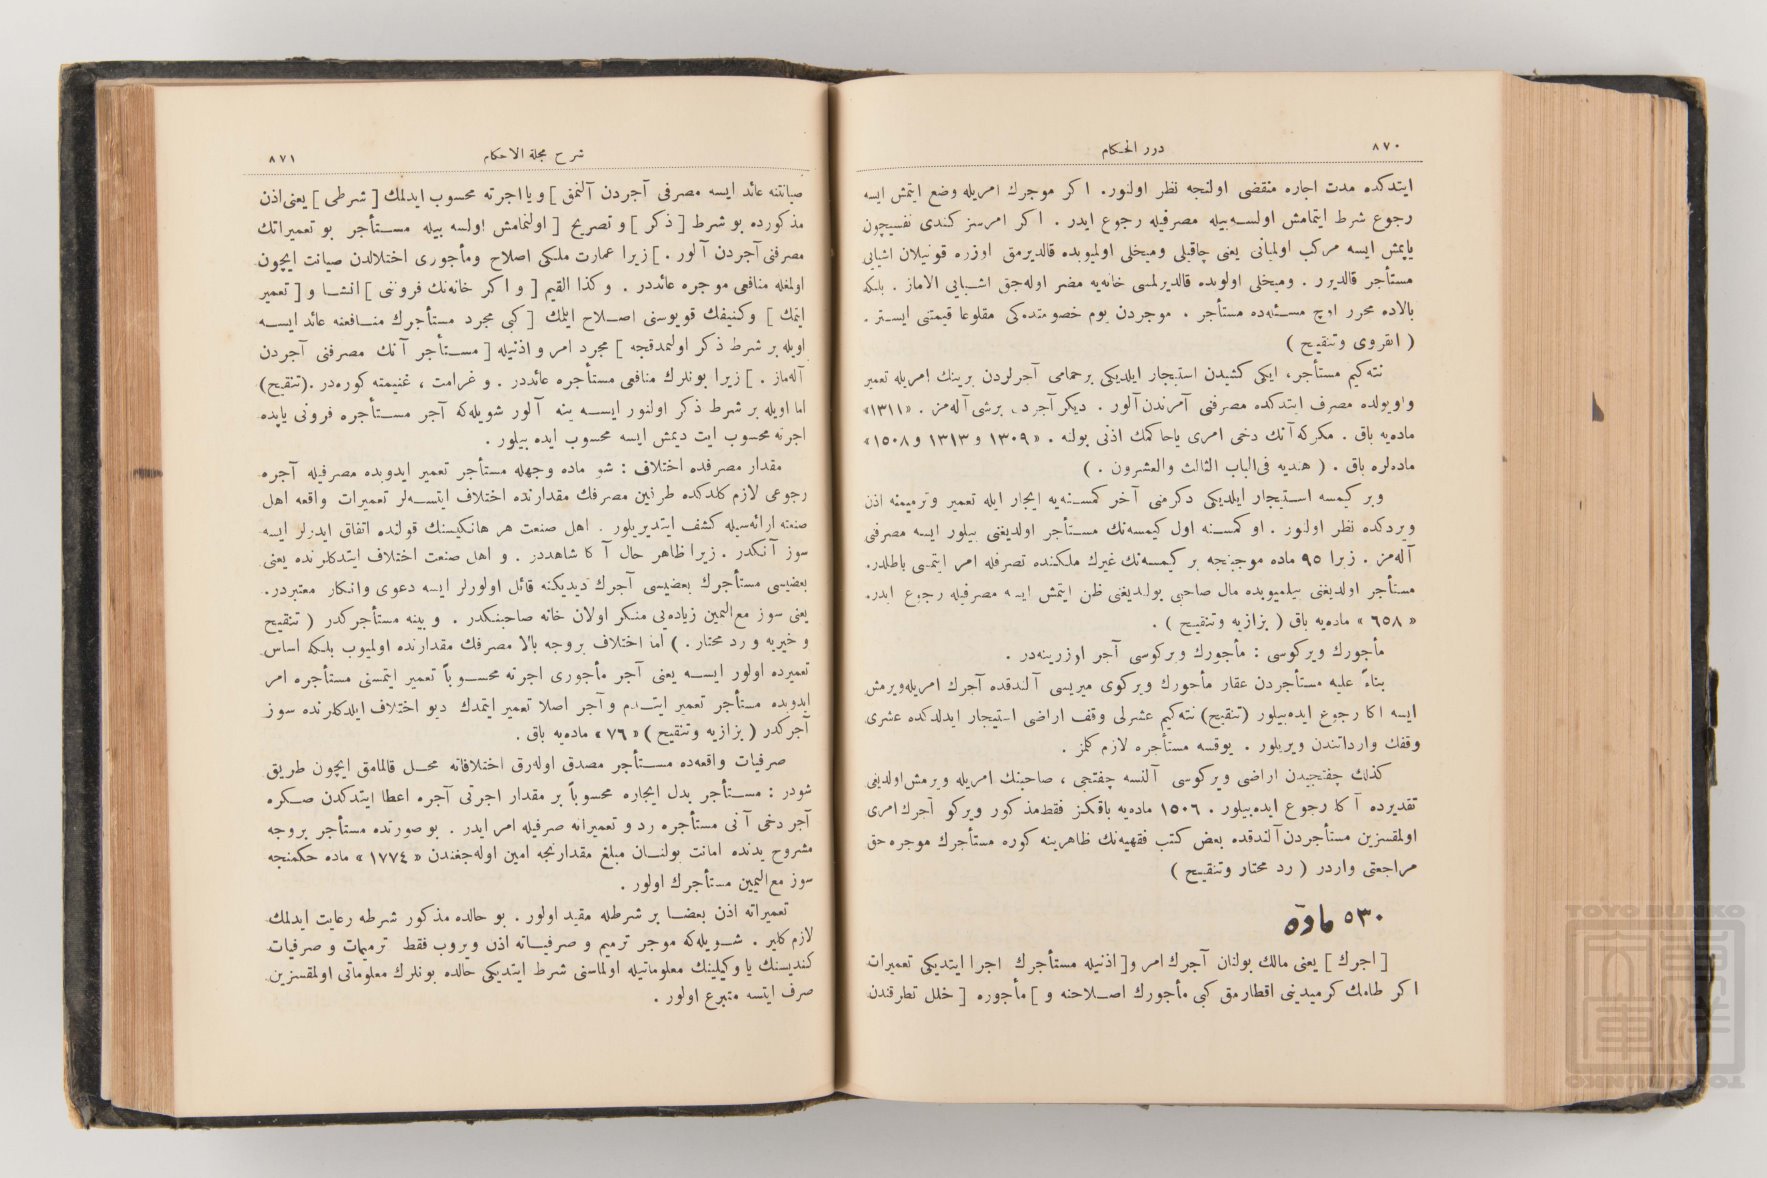 ٨٧٠
درر الحكام
ايتدكده مدت اجاره منقضى اولنجه نظر اولنور. اكر موجرك امريله وضع ايتمش ايسه
رجوع شرط ايتمامش اولسه بيله مصرفيله رجوع ايدر . اكر امرسز كندى نفسيچون
ياپمش ايسه مركب اولميانى يعنى چاقيلى وميخلى اولميوبده قالديرمق اوزره قونيلان اشيايى
مستأجر قالديرر . وميخلى اولوبده قالديرلمسى خانه‌يه مضر اوله‌جق اشيايى الاماز . بلكه
بالاده محرر اوچ مسئله‌ده مستأجر ، موجردن يوم خصومتده‌كى مقلوعا قيمتنى ايستر .
( انقروى وتنقيح )
نته‌كيم مستأجر، ايكى كشيدن استيجار ايلديكى برحمامى آجرلردن برينك امريله تعمير
واويولده مصرف ايتدكده مصرفنى آمرندن آلور . ديكر آجردن برشى آله‌مز . «١٣١١»
ماده‌يه باق . مكركه آنك دخى امرى ياحاكمك اذنى بولنه . «١٣٠٩ و ١٣١٣ و ١٥٠٨»
ماده‌لره باق . ( هنديه فى‌الباب الثالث والعشرون . )
وبر كيمسه استيجار ايلديكى دكرمنى آخر كمسنه‌يه ايجار ايله تعمير وترميمنه اذن
ويردكده نظر اولنور . او كمسنه اول كيمسه‌نك مستأجر اولديغنى بيلور ايسه مصرفى
آله‌مز . زيرا ٩٥ ماده موجبنجه بر كيمسه‌نك غيرك ملكنده تصرفله امر ايتمسى باطلدر.
مستأجر اولديغنى بيلميوبده مال صاحبى بولنديغنى ظن ايتمش ايسه مصرفيله رجوع ايدر.
« ٦٥٨ » ماده‌يه باق ( بزازيه وتنقيح ) .
مأجورك ويركوسى : مأجورك ويركوسى آجر اوزرينه‌در .
بناءً عليه مستأجردن عقار مأجورك ويركوى ميريسى آلندقده آجرك امريله‌ويرمش
ايسه اكا رجوع ايده‌بيلور (تنقيح) نته‌كيم عشرلى وقف اراضى استيجار ايدلدكده عشرى
وقفك وارداتندن ويريلور . يوقسه مستأجره لازم كلمز .
كذلك چفتجيدن اراضى ويركوسى آلنسه چفتجى ، صاحبنك امريله ويرمش‌اولديغى
تقديرده آكا رجوع ايده‌بيلور . ١٥٠٦ ماده‌يه باقكز فقط‌مذكور ويركو آجرك امرى
اولمقسزين مستأجردن آلندقده بعض كتب فقهيه‌نك ظاهرينه كوره مستأجرك موجره حق
مراجعتى واردر ( رد محتار وتنقيح )
٥٣٠ ماده
[ آجرك ] يعنى مالك بولنان آجرك امر و[ اذنيله مستأجرك اجرا ايتديكى تعميرات
اكر طامك كرميدينى اقطارمق كبى مأجورك اصلاحنه و ] مأجوره [ خلل تطرقندن
شرح مجلة الاحكام
٨٧١
صيانتنه عائد ايسه مصرفى آجردن آلنمق ] و يا اجرته محسوب ايدلمك [ شرطى ] يعنى اذن
مذكورده بو شرط [ ذكر ] و تصريح [ اولنمامش اولسه بيله مستأجر بو تعميراتك
مصرفنى آجردن آلور . ] زيرا عمارت ملكى اصلاح ومأجورى اختلالدن صيانت ايچون
اولمغله منافعى موجره عائددر . وكذا القيم [ و اكر خانه‌نك فروننى ] انشا و [ تعمير
ايتمك ] وكنيفك قويوسنى اصلاح ايلمك [ كبى مجرد مستأجرك منافعنه عائد ايسه
اويله بر شرط ذكر اولنمدقجه ] مجرد امر و اذنيله [ مستأجر آنك مصرفنى آجردن
آله‌ماز . ] زيرا بونلرك منافعى مستأجره عائددر . و غرامت ، غنيمته كوره‌در .(تنقيح)
اما اويله بر شرط ذكر اولنور ايسه ينه آلور شويله‌كه آجر مستأجره فرونى ياپده
اجرته محسوب ايت ديمش ايسه محسوب ايده بيلور .
مقدار مصرفده اختلاف : شو ماده وجهله مستأجر تعمير ايدوبده مصرفيله آجره
رجوعى لازم كلدكده طرفين مصرفك مقدارنده اختلاف ايتسه‌لر تعميرات واقعه اهل
صنعته ارائه‌سيله كشف ايتديريلور . اهل صنعت هر هانكيسنك قولنده اتفاق ايدرلر ايسه
سوز آنكدر . زيرا ظاهر حال آكا شاهددر . و اهل صنعت اختلاف ايتدكلرنده يعنى
بعضيسى مستأجرك بعضيسى آجرك ديديكنه قائل اولورلر ايسه دعوى وانكار معتبردر.
يعنى سوز مع‌اليمين زياده‌يى منكر اولان خانه صاحبنكدر . و بينه مستأجركدر ( تنقيح
و خيريه و رد محتار . ) اما اختلاف بروجه بالا مصرفك مقدارنده اولميوب بلكه اساس
تعميرده اولور ايسه يعنى آجر مأجورى اجرته محسوباً تعمير ايتمسنى مستأجره امر
ايدوبده مستأجر تعمير ايتدم و آجر اصلا تعمير ايتمدك ديو اختلاف ايلدكلرنده سوز
آجركدر ( بزازيه وتنقيح ) «٧٦» ماده‌يه باق .
صرفيات واقعه‌ده مستأجر مصدق اوله‌رق اختلافاته محل قالمامق ايچون طريق
شودر : مستأجر بدل ايجاره محسوباً بر مقدار اجرتى آجره اعطا ايتدكدن صكره
آجر دخى آنى مستأجره رد و تعميراته صرفيله امر ايدر . بو صورتده مستأجر بروجه
مشروح يدنده امانت بولنان مبلغ مقدارنجه امين اوله‌جغندن « ١٧٧٤ » ماده حكمنجه
سوز مع‌اليمين مستأجرك اولور .
تعميراته اذن بعضا بر شرطله مقيد اولور . بو حالده مذكور شرطه رعايت ايدلمك
لازم كلير . شويله‌كه موجر ترميم و صرفياته اذن ويروب فقط ترميمات و صرفيات
كنديسنك يا وكيلينك معلوماتيله اولماسنى شرط ايتديكى حالده بونلرك معلوماتى اولمقسزين
صرف ايتسه متبرع اولور .
TOYO BUNKO